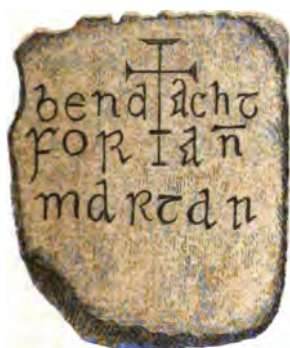 bendacht
FOR an̄
maRtan